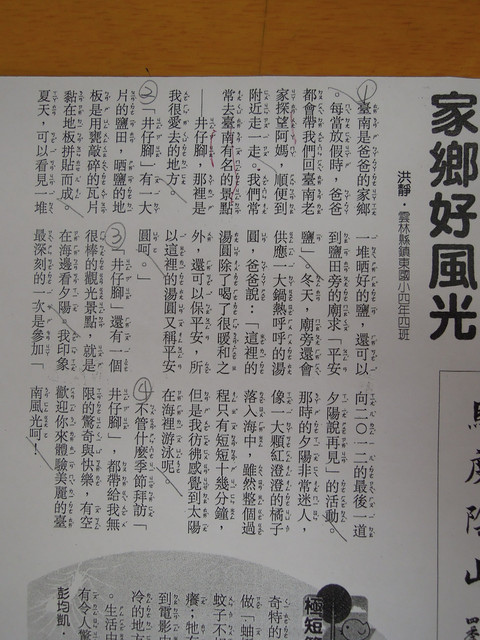 家鄉好風光
洪靜．雲林縣鎮東國小四年四班
①
臺南是爸爸的家鄉
。每當放假時，爸爸
都會帶我們回臺南老
家探望阿媽，順便到
附近走一走。我們常
常去臺南有名的景點
──井仔腳，那裡是
我很愛去的地方。
②
「井仔腳」有一大
片的鹽田，晒鹽的地
板是用甕敲碎的瓦片
黏在地板拼貼而成。
夏天，可以看見一堆
一堆晒好的鹽，還可以
到鹽田旁的廟求「平安
鹽」。冬天，廟旁還會
供應一大鍋熱呼呼的湯
圓，爸爸說：「這裡的
湯圓除了喝了很暖和之
外，還可以保平安，所
以這裡的湯圓又稱平安
圓呵。」
③
「井仔腳」還有一個
很棒的觀光景點，就是
在海邊看夕陽。我印象
最深刻的一次是參加「
向二〇一二的最後一道
夕陽說再見」的活動。
那時的夕陽非常迷人，
像一大顆紅澄澄的橘子
落入海中，雖然整個過
程只有短短十幾分鐘，
但是我彷彿感覺到太陽
在海裡游泳呢。
④
不管什麼季節拜訪「
井仔腳」，都帶給我無
限的驚奇與快樂，有空
歡迎你來體驗美麗的臺
南風光呵！
極短
奇特的
做「蚰
蚊子不
癢；牠
到電影中
冷的地方
。生活中
有令人驚
彭均凱．